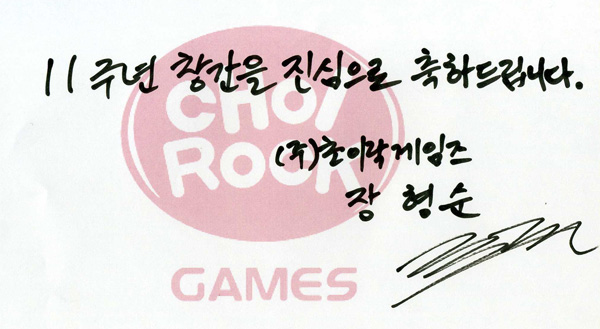 11주년 창간을 진심으로 축하드립니다.
CHOI
ROCK
(주)초이락게임즈
장형순
GAMES